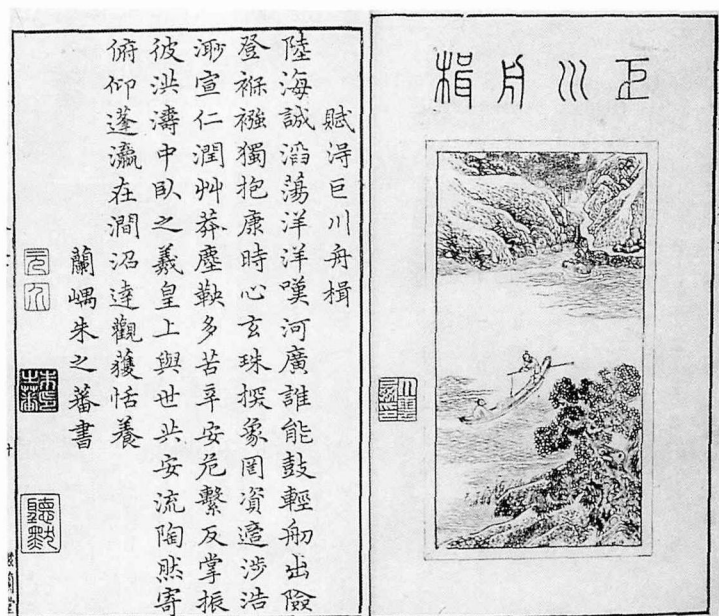 巨川舟楫
賦淂巨川舟楫
陸海誠滔蕩洋洋嘆河廣誰能鼓輕舠出險
登褓襁獨抱康時心玄珠探象罔資遄涉浩
渺宣仁潤艸莽塵鞅多苦辛安危繫反掌振
彼洪濤中臥之羲皇上與世共安流陶然寄
俯仰蓬瀛在澗沼達觀獲恬養
蘭嵎朱之蕃書
元介